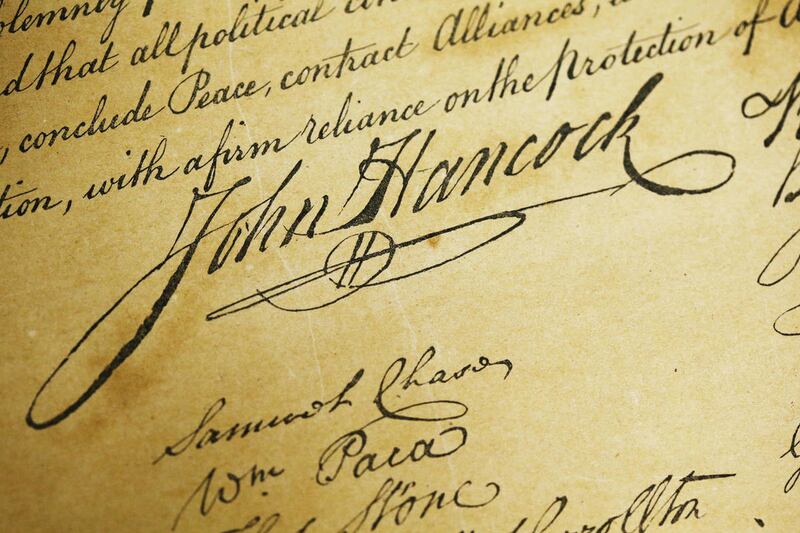 olemney
d that all political con
, conclude Peace, contract Alliances,
tion, with a firm reliance on the protection of
John Hancock
Samuel Chase
Wm Paca
Stone
Carrollton